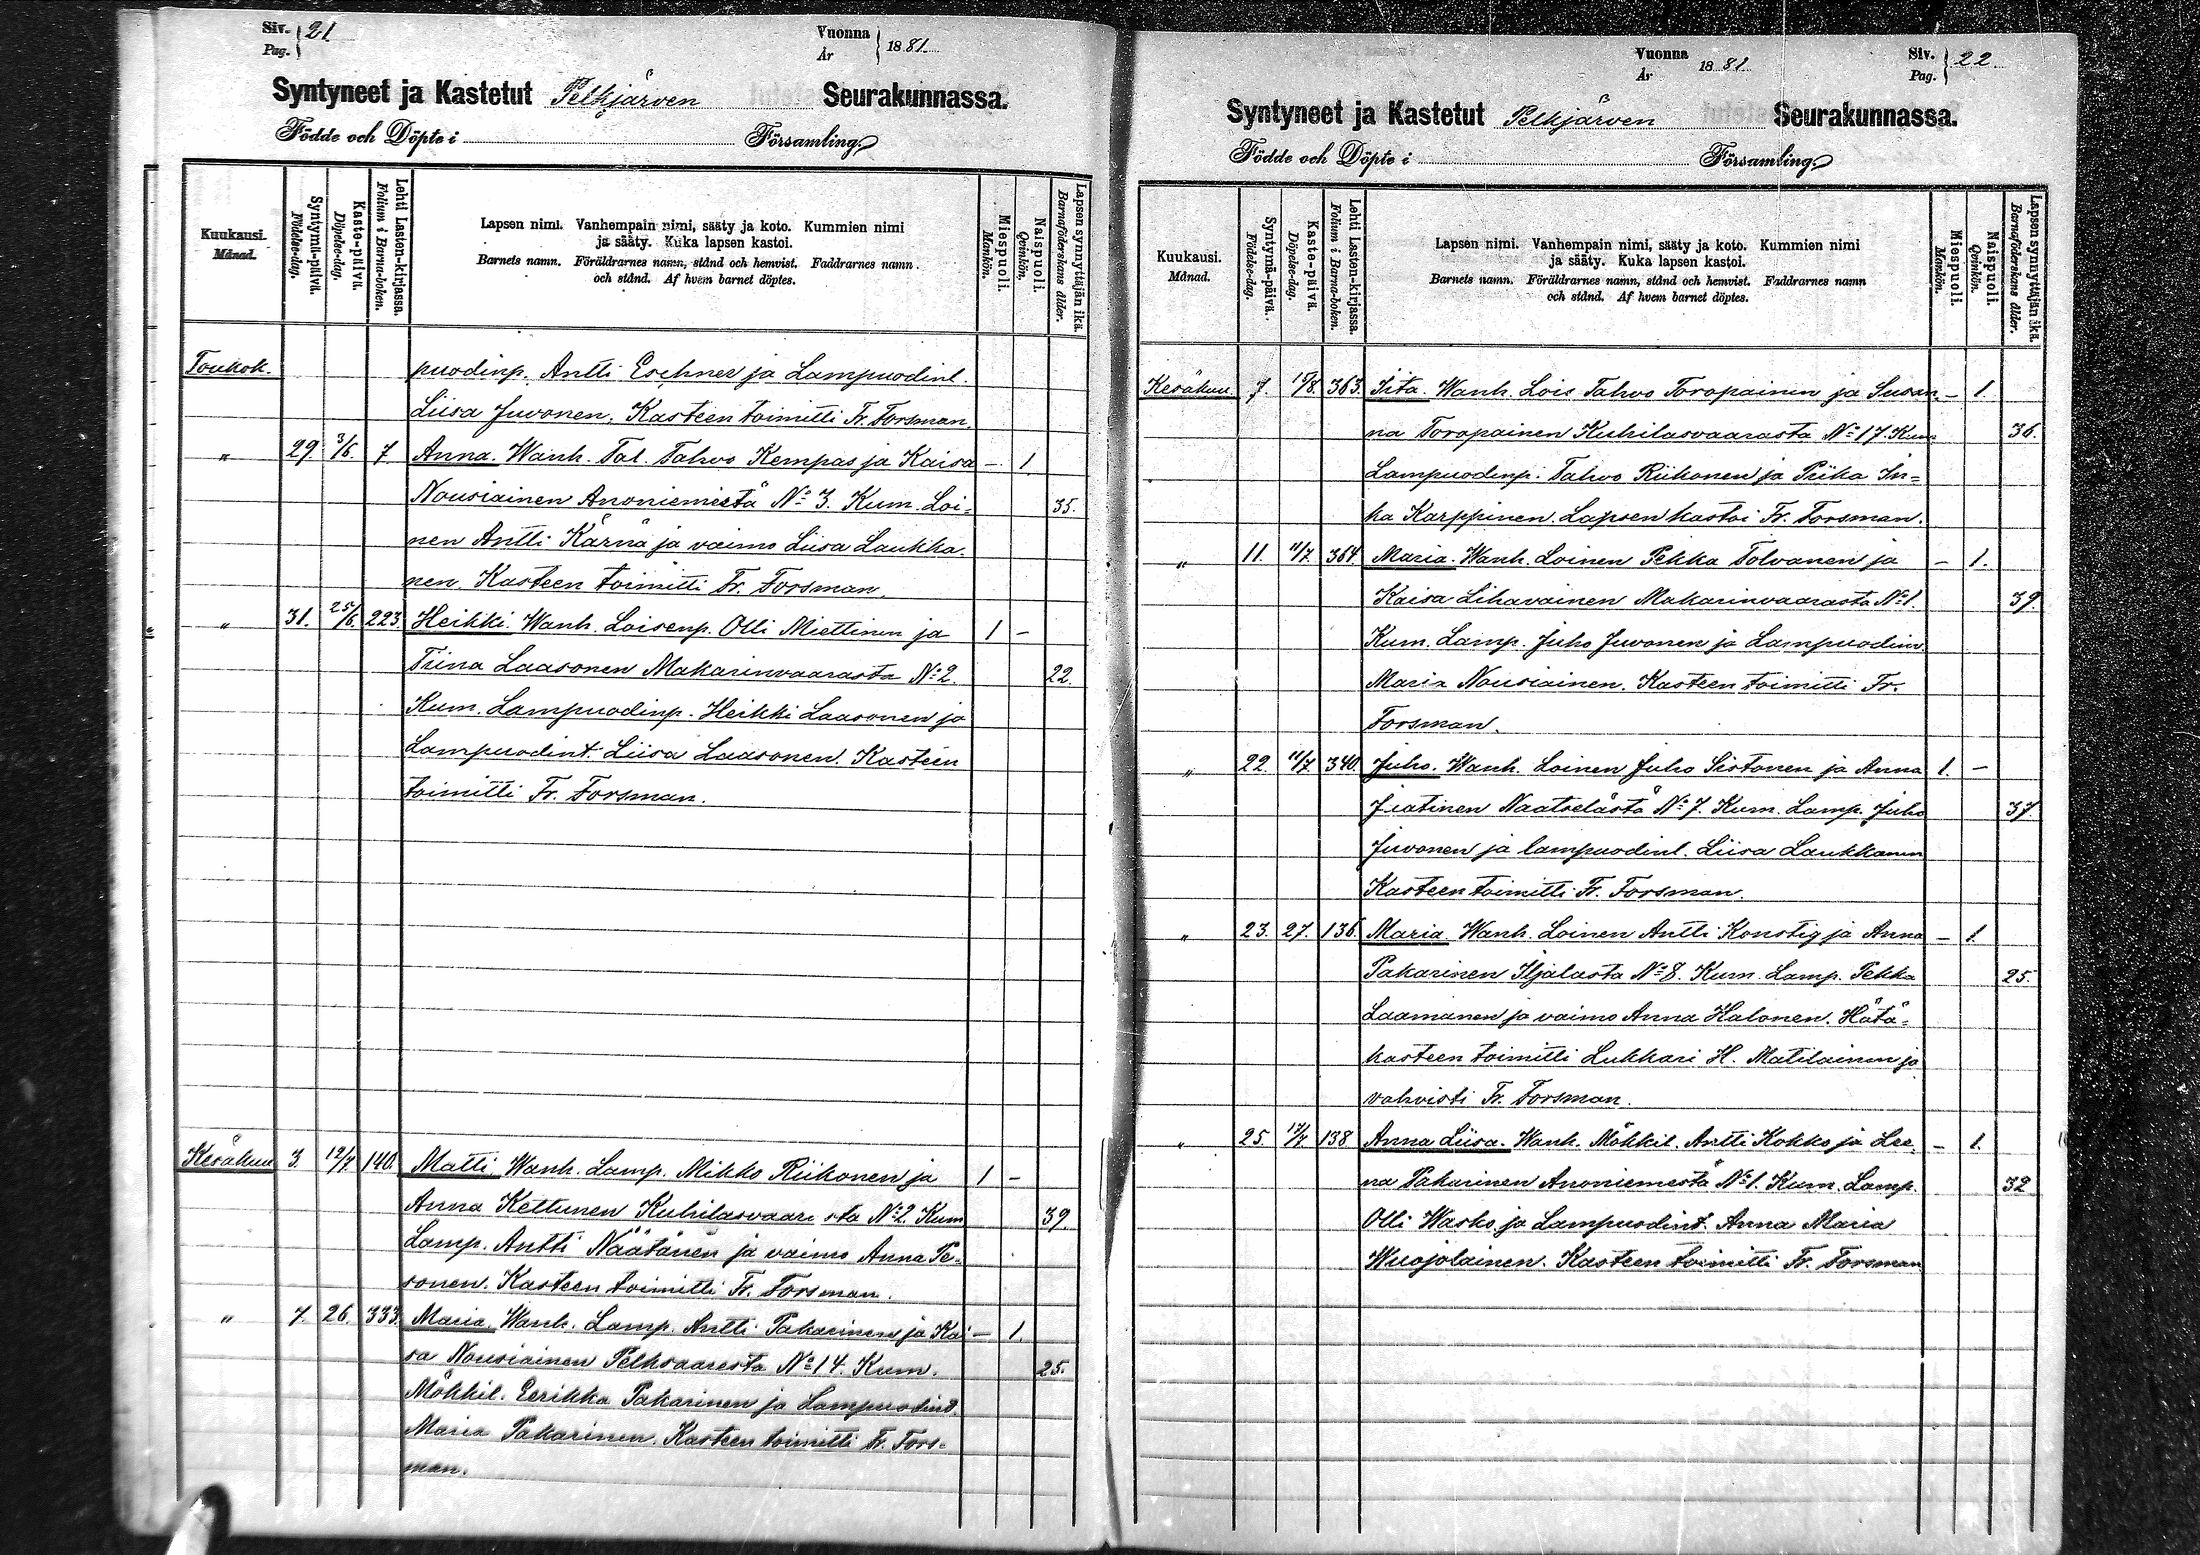 Siv. 21
Pag.
Vuonna 1881.
År
Syntyneet ja Kastetut Pelkjärven Seurakunnassa.
Födde och Döpte i Församling.
Kuukausi.
Månad.
Syntymä-päivä.
Födelse-dag.
Kaste-päivä.
Döpelse-dag.
Lehti Lasten-kirjassa.
Folium i Barna-boken.
Lapsen nimi. Vanhempain nimi, sääty ja koto. Kummien nimi
ja sääty. Kuka lapsen kastoi.
Barnets namn. Föräldrarnes namn, stånd och hemvist. Faddrarnes namn
och stånd. Af hvem barnet döptes.
Miespuoli.
Mankön.
Naispuoli.
Qvinkön.
Lapsen synnyttäjän ikä.
Barnaföderskans ålder.
Toukok. puodinp. Antti Eschner ja Lampuodint.
Liisa Juvonen. Kasteen toimitti Fr. Forsman.
„ 29. 3/6. 7. Anna. Wanh. Tal. Tahvo Kempas ja Kaisa — 1
Nousiainen Anoniemestä No 3. Kum. Loi- 35.
nen Antti Kärnä ja vaimo Liisa Laukka-
nen. Kasteen toimitti Fr. Forsman.
„ 31. 25/6. 223. Heikki. Wanh. Loisenp. Olli Miettinen ja 1 —
Triina Laasonen Makarinvaarasta No 2. 22.
Kum. Lampuodinp. Heikki Laasonen ja
Lampuodint. Liisa Laasonen. Kasteen
toimitti Fr. Forsman.
Kesäkuu 3. 12/7 140. Matti. Wanh. Lamp. Mikko Riikonen ja 1 —
Anna Kettunen Kuhilasvaarasta No 2. Kum 39.
Lamp. Antti Näätänen ja vaimo Anna Pe-
sonen. Kasteen toimitti Fr. Forsman.
„ 7. 26. 333. Maria. Wanh. Lamp. Antti Pakarinen ja Kai — 1.
sa Nousiainen Pelksaaresta No 14. Kum. 25.
Mökkil. Eerikka Pakarinen ja Lampuodint.
Maria Pakarinen. Kasteen toimitti Fr. Fors-
man.
Vuonna 1881
År
Siv. 22.
Pag.
Syntyneet ja Kastetut Pelkjärven Seurakunnassa.
Födde och Döpte i Församling.
Kuukausi.
Månad.
Syntymä-päivä.
Födelse-dag.
Kaste-päivä.
Döpelse-dag.
Lehti Lasten-kirjassa.
Folium i Barna-boken.
Lapsen nimi. Vanhempain nimi, sääty ja koto. Kummien nimi
ja sääty. Kuka lapsen kastoi.
Barnets namn. Föräldrarnes namn, stånd och hemvist. Faddrarnes namn
och stånd. Af hvem barnet döptes.
Miespuoli.
Mankön.
Naispuoli.
Qvinkön.
Lapsen synnyttäjän ikä.
Barnaföderskans ålder.
Kesäkuu 7. 363. Iita. Wanh. Lois Tahvo Toropainen ja Susan- — 1.
na Toropainen Kuhilasvaarasta No 17. Kum 36.
Lampuodinp. Tahvo Riikonen ja Piika In-
ka Karppinen. Lapsen kastoi Fr. Forsman.
„ 11. 11/7 364. Maria. Wanh. Loinen Pekka Tolvanen ja — 1.
Kaisa Lihavainen Makarinvaarasta No 1. 39.
Kum. Lamp. Juho Juvonen ja Lampuodin
Maria Nousiainen. Kasteen toimitti Fr.
Forsman.
„ 22. 11/7 340. Juho. Wanh. Loinen Juho Sistonen ja Anna 1. —
Jiatinen Naatselästä No 7. Kum. Lamp. Juho 37.
Juvonen ja lampuodint. Liisa Laukkanen
Kasteen toimitti Fr. Forsman.
„ 23. 27. 136. Maria. Wanh. Loinen Antti Konstig ja Anna — 1.
Pakarinen Iljalasta No 8. Kum. Lamp. Pekka 25.
Laamanen ja vaimo Anna Halonen. Hätä-
kasteen toimitti Lukkari H. Matilainen ja
vahvisti Fr. Forsman.
„ 25. 17/7 138 Anna Liisa. Wanh. Mökkil. Antti Kokko ja Lee- — 1.
na Pakarinen Anoniemestä No 1. Kum. Lamp. 32
Olli Wasko ja Lampuodint. Anna Maria
Wuojolainen. Kasteen toimitti Fr. Forsman